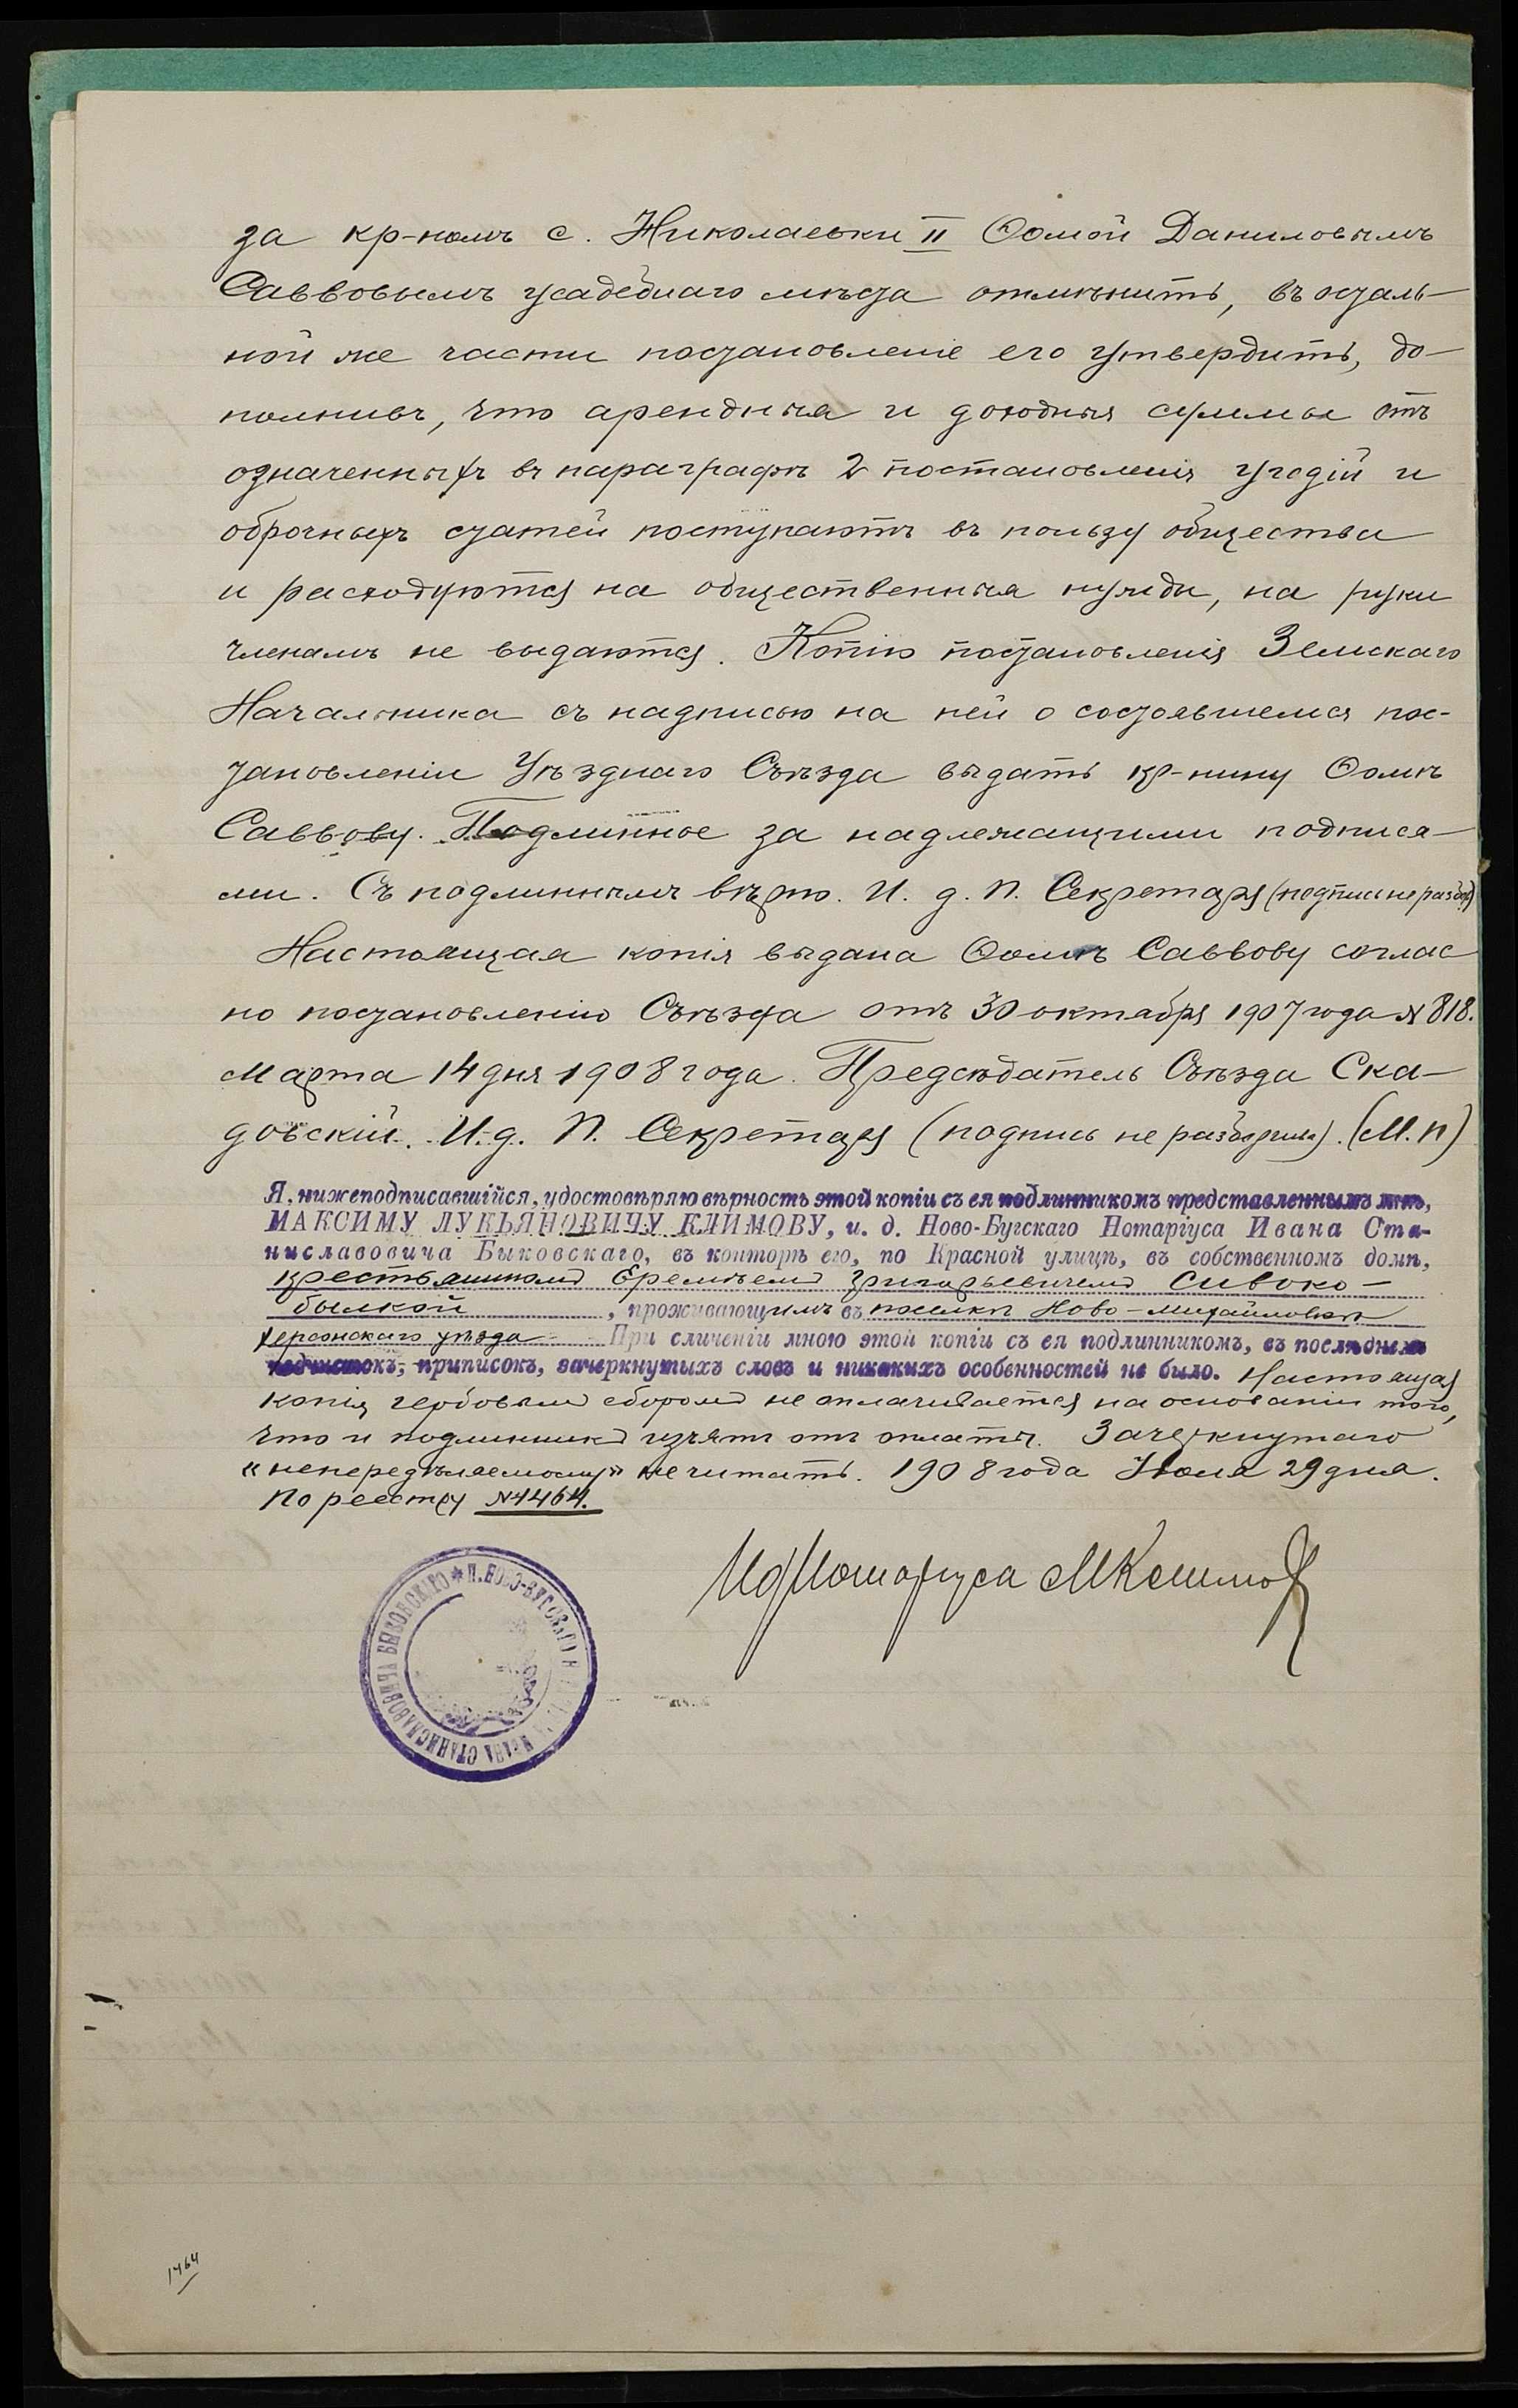 за кр-номъ с. Николаевки II Ѳомой Даниловымъ
Саввовымъ усадебнаго мѣста отмѣнить, въ осталь-
ной же части постановленіе его утвердить, до-
полнивъ, что арендныя и доходныя суммы отъ
означенныхъ въ параграфѣ 2 постановленія угодій и
оброчныхъ статей поступаютъ въ пользу общества
и расходуются на общественныя нужды, на руки
членамъ не выдаются. Копію постановленія Земскаго
Начальника съ надписью на ней о состоявшемся пос-
тановленіи Уѣзднаго Съѣзда выдать кр-нину Ѳомѣ
Саввову. Подлинное за надлежащими подпися-
ми. Съ подлиннымъ вѣрно. И. д. П. Секретаря (подпись не разбор)
Настоящая копія выдана Ѳомѣ Саввову соглас
но постановленію Съѣзда отъ 30 октября 1907 года № 818.
Марта 14 дня 1908 года. Предсѣдатель Съѣзда Ска-
довскій. И. д. П. Секретаря (подпись не разборчива). (М. п)
Я, нижеподписавшійся, удостовѣряю вѣрность этой копіи съ ея подлинникомъ представленнымъ мнѣ,
МАКСИМУ ЛУКЬЯНОВИЧУ КЛИМОВУ, и. д. Ново-Бугскаго Нотаріуса Ивана Ста-
ниславовича Быковскаго, въ конторѣ его, по Красной улицѣ, въ собственномъ домѣ,
крестьяниномъ Еремѣемъ Григорьевичемъ Сивоко-
былкой, проживающимъ въ поселкѣ Ново-Михайловкѣ
Херсонскаго уѣзда При сличеніи мною этой копіи съ ея подлинникомъ, въ послѣднемъ
подчистокъ, приписокъ, зачеркнутыхъ словъ и никакихъ особенностей не было. Настоящая
копія гербовымъ сборомъ не оплачивается на основаніи того,
что и подлинникъ изъятъ отъ оплаты. Зачеркнутаго
"непередѣляемому" не читать. 1908 года Іюля 29 дня.
По реестру №1464.
ИдНотаріуса МКлимов
* Н. НОВО-БУГСКАГО ИВАНА СТАНИСЛАВОВИЧА БЫКОВСКАГО
1464